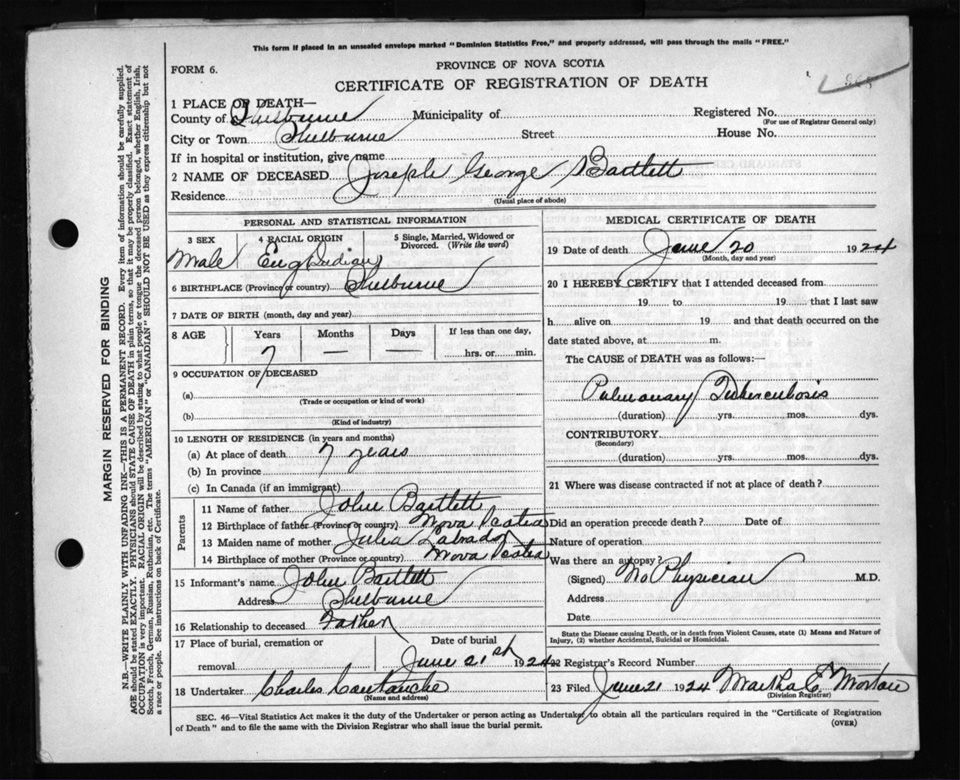 This form if placed in an unsealed envelope marked "Dominion Statistics Free," and properly addressed, will pass through the mails "FREE."
FORM 6.
PROVINCE OF NOVA SCOTIA
CERTIFICATE OF REGISTRATION OF DEATH
1 PLACE OF DEATH—
County of Shelburne Municipality of Registered No.
(For use of Registrar General only)
City or Town Shelburne Street House No.
If in hospital or institution, give name
2 NAME OF DECEASED Joseph George Bartlett
Residence
(Usual place of abode)
PERSONAL AND STATISTICAL INFORMATION
3 SEX 4 RACIAL ORIGIN 5 Single, Married, Widowed or Divorced. (Write the word)
Male
6 BIRTHPLACE (Province or country) Shelburne
7 DATE OF BIRTH (month, day and year)
8 AGE Years Months Days If less than one day,
7 — — hrs. or min.
9 OCCUPATION OF DECEASED
(a)
(Trade or occupation or kind of work)
(b)
(Kind of industry)
10 LENGTH OF RESIDENCE (in years and months)
(a) At place of death 7 years
(b) In province
(c) In Canada (if an immigrant)
Parents
11 Name of father John Bartlett
12 Birthplace of father (Province or country) Nova Scotia
13 Maiden name of mother Julia Labrador
14 Birthplace of mother (Province or country) Nova Scotia
15 Informant's name John Bartlett
Address Shelburne
16 Relationship to deceased Father
17 Place of burial, cremation or removal Date of burial
June 21st 1924
18 Undertaker Charles
(Name and address)
MEDICAL CERTIFICATE OF DEATH
19 Date of death June 20 1924
(Month, day and year)
20 I HEREBY CERTIFY that I attended deceased from
19 to 19 that I last saw
h alive on 19 and that death occurred on the
date stated above, at m.
The CAUSE OF DEATH was as follows:—
Pulmonary Tuberculosis
(duration) yrs. mos. dys.
CONTRIBUTORY
(Secondary)
(duration) yrs. mos. dys.
21 Where was disease contracted if not at place of death?
Did an operation precede death? Date of
Nature of operation
Was there an autopsy?
(Signed) No Physician M.D.
Address
Date
State the Disease causing Death, or in death from Violent Causes, state (1) Means and Nature of
Injury, (2) whether Accidental, Suicidal or Homicidal.
22 Registrar's Record Number
23 Filed June 21 1924 Martha E Morton
(Division Registrar)
SEC. 46—Vital Statistics Act makes it the duty of the Undertaker or person acting as Undertaker to obtain all the particulars required in the "Certificate of Registration
of Death" and to file the same with the Division Registrar who shall issue the burial permit.
(OVER)
MARGIN RESERVED FOR BINDING
N.B.—WRITE PLAINLY WITH UNFADING INK—THIS IS A PERMANENT RECORD. Every item of information should be carefully supplied.
AGE should be stated EXACTLY. PHYSICIANS should STATE CAUSE OF DEATH in plain terms, so that it may be properly classified. Exact statement of
OCCUPATION is very important. RACIAL ORIGIN will be described by stating to what people or tongue the deceased person belonged, whether English, Irish,
Scotch, French, German, Russian, Ruthenian, etc. The terms "AMERICAN" or "CANADIAN" SHOULD NOT BE USED as they express citizenship but not
a race or people. See instructions on back of Certificate.